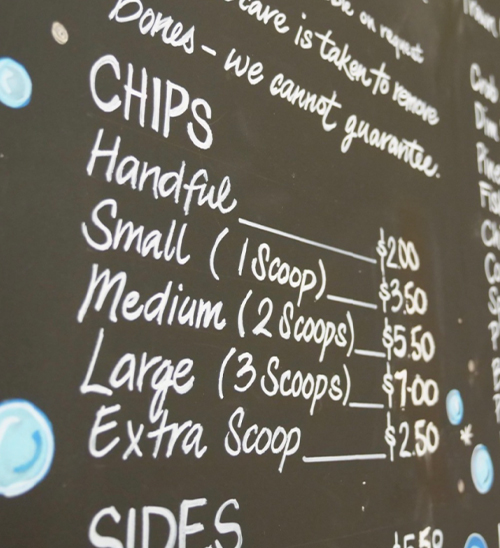 on request
care is taken to remove
Bones - we cannot guarantee.
CHIPS
Handful $2.00
Small (1 Scoop) $3.50
Medium (2 Scoops) $5.50
Large (3 Scoops) $7.00
Extra Scoop $2.50
SIDES
$5.50